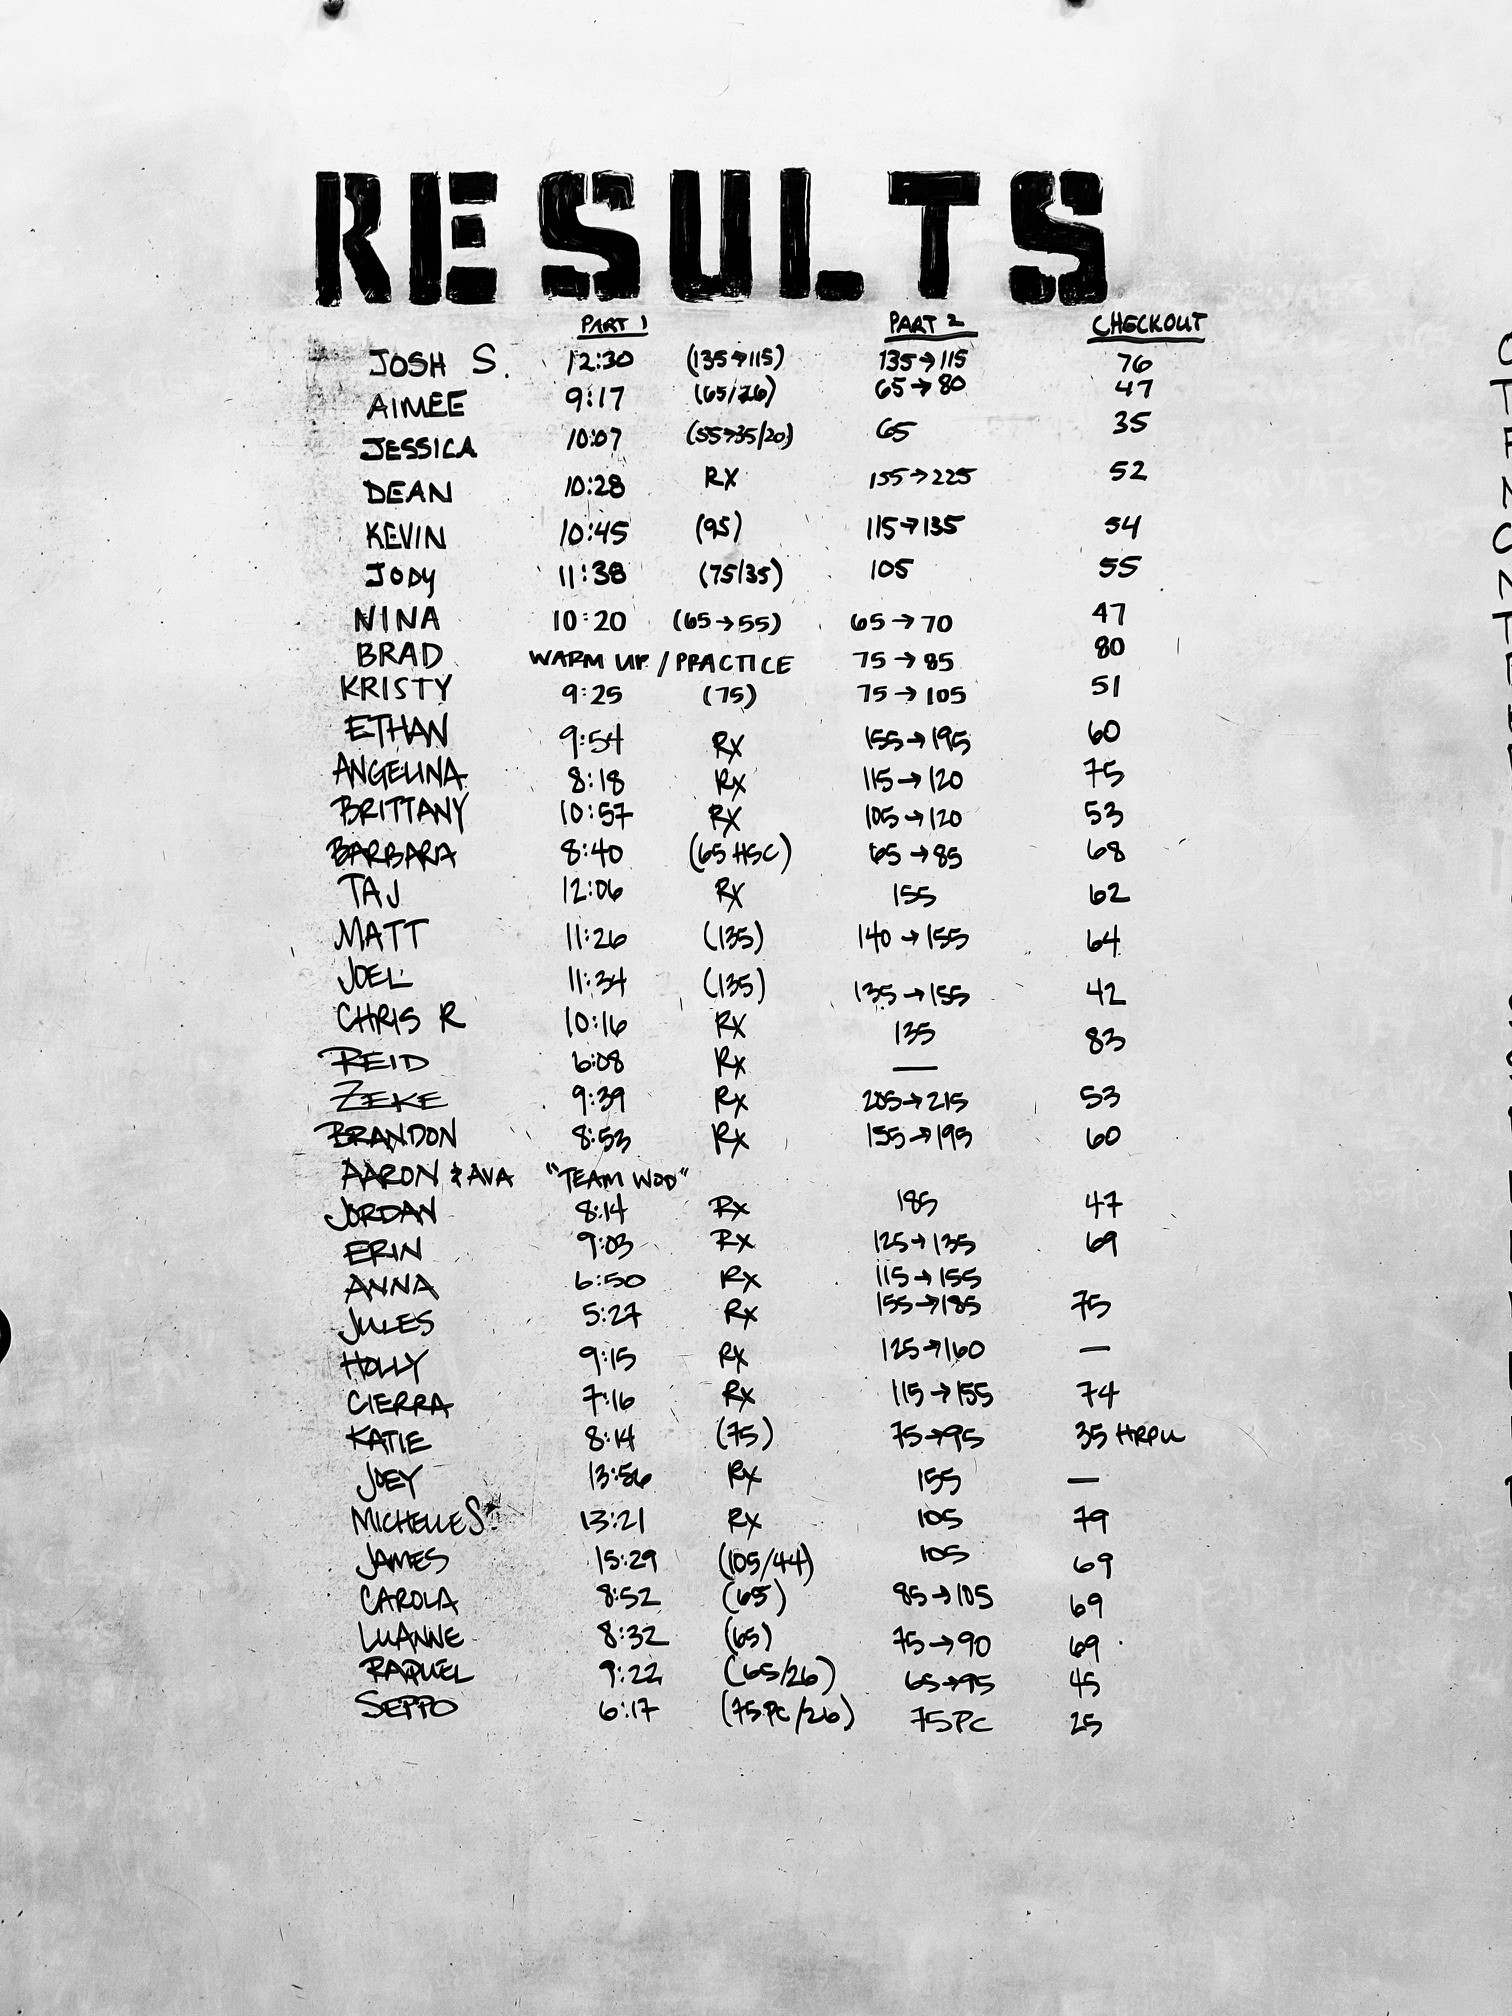 RESULTS
PART 1 PART 2 CHECKOUT
JOSH S. 12:30 (135→115) 135→115 76
AIMEE 9:17 (65/26) 65→80 47
JESSICA 10:07 (55→35/20) 65 35
DEAN 10:28 RX 155→225 52
KEVIN 10:45 (95) 115→135 54
JODY 11:38 (75/35) 105 55
NINA 10:20 (65→55) 65→70 47
BRAD WARM UP / PRACTICE 75→85 80
KRISTY 9:25 (75) 75→105 51
ETHAN 9:54 RX 155→195 60
ANGELINA 8:18 RX 115→120 75
BRITTANY 10:57 RX 105→120 53
BARBARA 8:40 (65 HSC) 65→85 68
TAJ 12:06 RX 155 62
MATT 11:26 (135) 140→155 64
JOEL 11:34 (135) 135→155 42
CHRIS R 10:16 RX 135 83
REID 6:08 RX —
ZEKE 9:39 RX 205→215 53
BRANDON 8:53 RX 155→195 60
AARON & AVA "TEAM WOD"
JORDAN 8:14 RX 185 47
ERIN 9:03 RX 125→135 69
ANNA 6:50 RX 115→155
JULES 5:27 RX 155→185 75
HOLLY 9:15 RX 125→160 —
CIERRA 7:16 RX 115→155 74
KATIE 8:14 (75) 75→95 35 HRPU
JOEY 13:56 RX 155 —
MICHELLE S. 13:21 RX 105 79
JAMES 15:29 (105/44) 105 69
CAROLA 8:52 (65) 85→105 69
LUANNE 8:32 (65) 75→90 69
RAQUEL 9:22 (65/26) 65→95 45
SEPPO 6:17 (75PC/26) 75PC 25